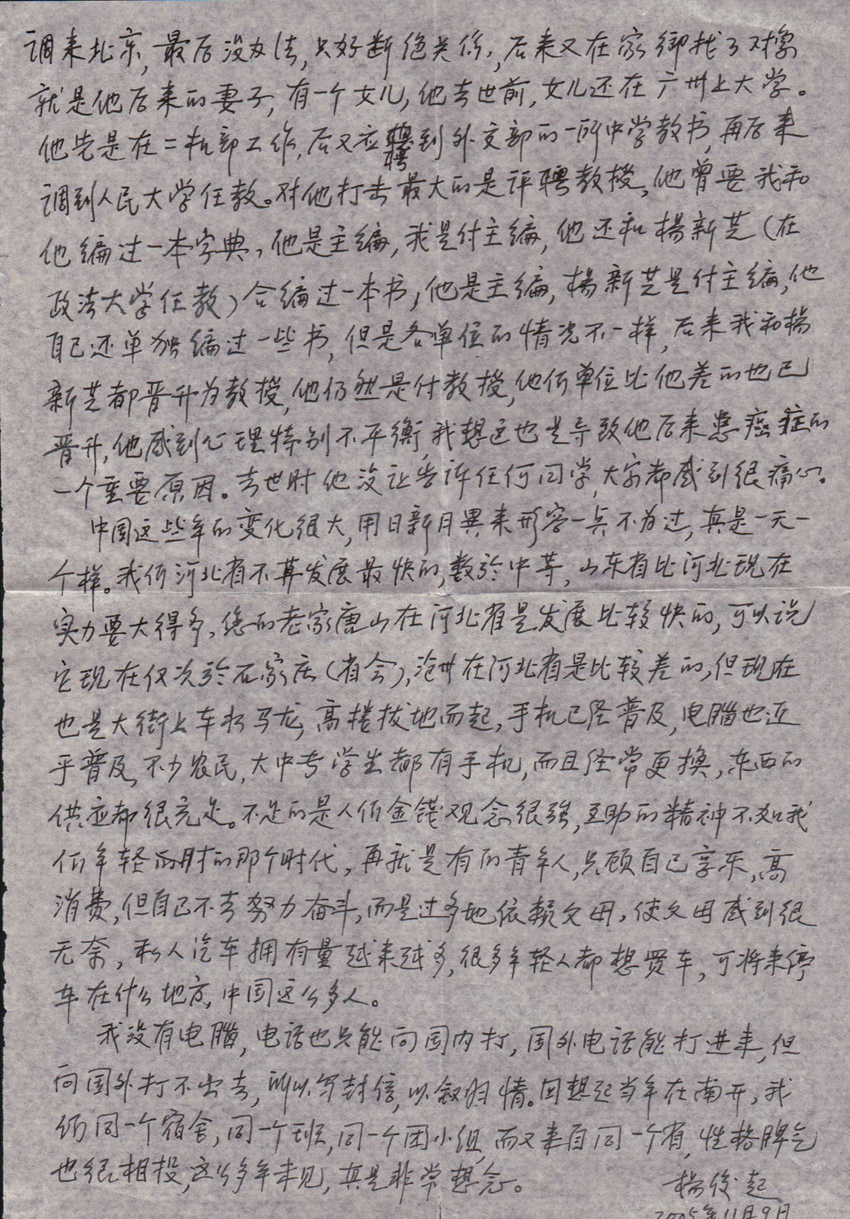 调来北京，最后没办法，只好断绝关系，后来又在家乡找了对象
就是他后来的妻子，有一个女儿，他去世前，女儿还在广州上大学。
他先是在二机部工作，后又应聘到外交部的一所中学教书，再后来
调到人民大学任教。对他打击最大的是评聘教授，他曾要我和
他编过一本字典，他是主编，我是付主编，他还和楊新芝（在
政法大学任教）合编过一本书，他是主编，楊新芝是付主编，他
自己还单独编过一些书，但是各单位的情况不一样，后来我和楊
新芝都晋升为教授，他仍然是付教授，他们单位比他差的也已
晋升，他感到心理特别不平衡，我想这也是导致他后来患癌症的
一个重要原因。去世时他没让告诉任何同学，大家都感到很痛心。
中国这些年的变化很大，用日新月異来形容一点不为过，真是一天一
个样。我们河北省不算发展最快的，数於中等，山东省比河北现在
实力要大得多，您的老家唐山在河北省是发展比较快的，可以说
它现在仅次於石家庄（省会），沧州在河北省是比较差的，但现在
也是大街上车水马龙，高楼拔地而起，手机已经普及，电腦也近
乎普及，不少农民，大中专学生都有手机，而且经常更换，东西的
供应都很充足。不足的是人们金钱观念很强，互助的精神不如我
们年轻时的那个时代，再就是有的青年人，只顾自己享乐，高
消费，但自己不去努力奋斗，而是过多地依赖父母，使父母感到很
无奈，私人汽车拥有量越来越多，很多年轻人都想買车，可将来停
车在什么地方，中国这么多人。
我没有电腦，电话也只能向国内打，国外电话能打进来，但
向国外打不出去，所以写封信，以叙旧情。回想起当年在南开，我
们同一个宿舍，同一个班，同一个团小组，而又来自同一个省，性格脾气
也很相投，这么多年未见，真是非常想念。
楊俊起
2005年11月9日